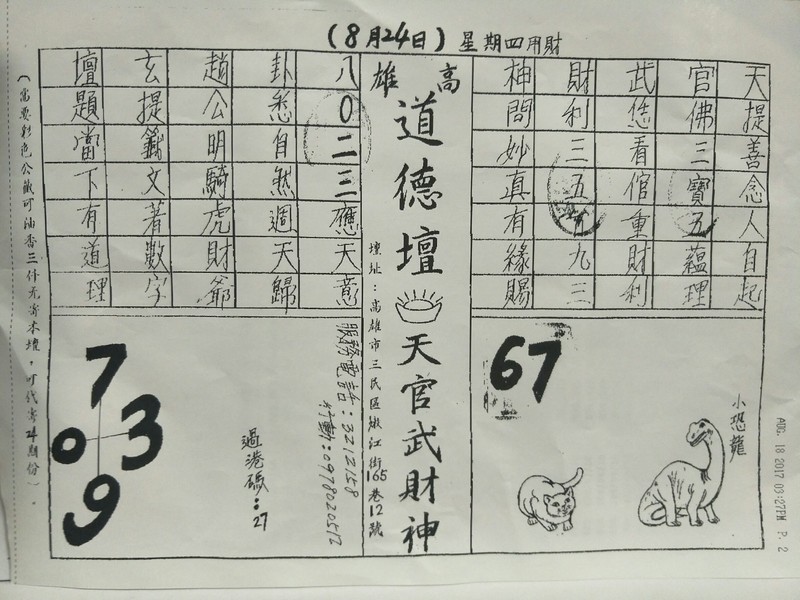 (8月24日) 星期四用財
天提善念人自起
官佛三寶五蘊理
武悠看倌重財利
財利三五九三
神問妙真有緣賜
67
小恐龍
高雄
道德壇天官武財神
壇址：高雄市三民區嫩江街165巷12號
八0二三應天意
卦悉自然週天歸
趙公明騎虎財爺
玄提籤文著數字
壇題當下有道理
服務電話：3212158
行動：0978020517
過港碼：27
7
0 3
9
(需要彩色公籤可油香三仟元寄本壇，可代寄24期份)。
AUG. 18 2017 03:27PM P. 2